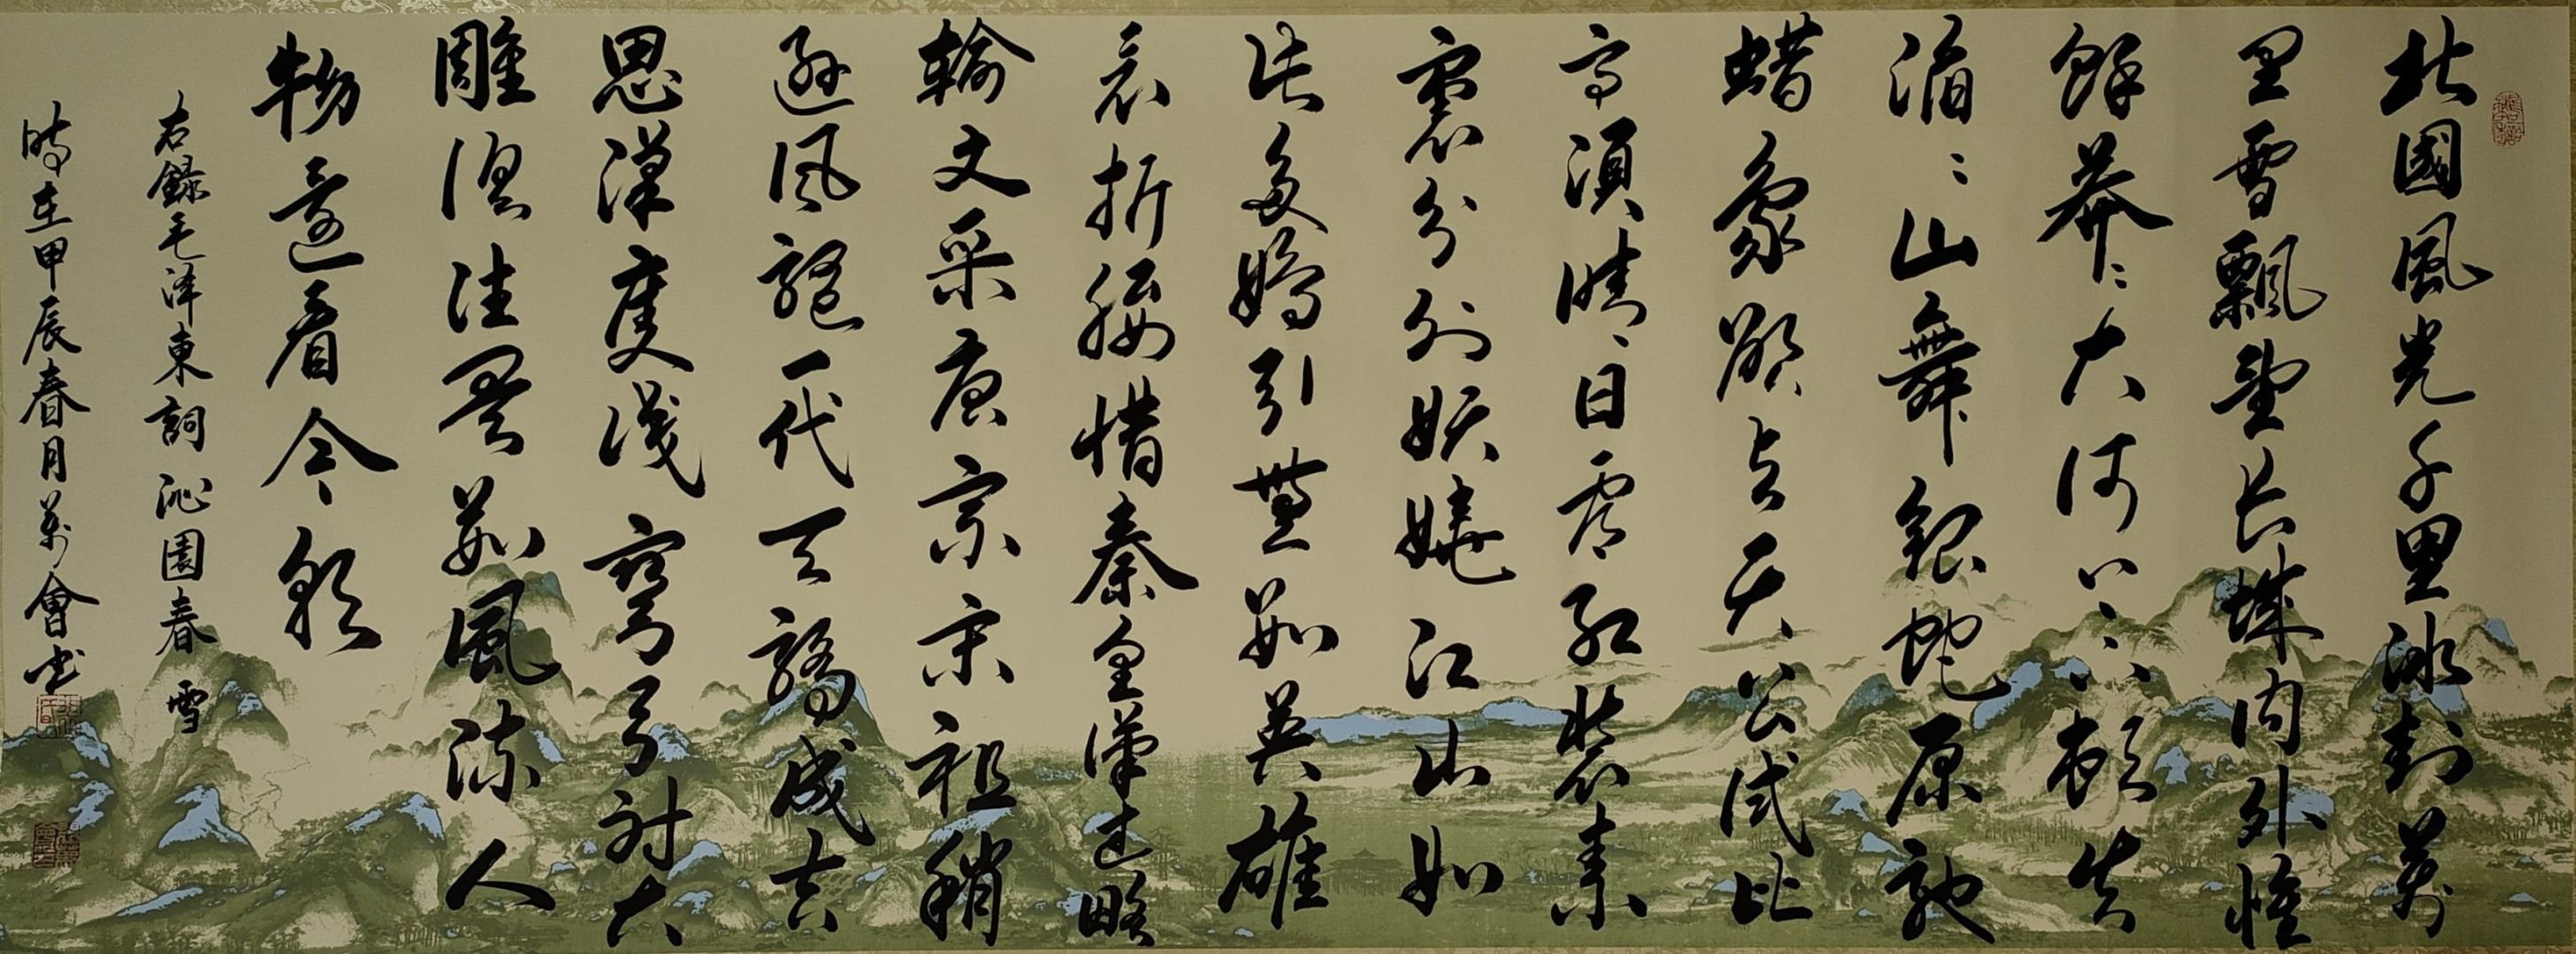 北國風光千里冰封萬
里雪飄望长城内外惟
餘莽〻大河上下頓失
滔〻山舞銀蛇原馳
蜡象欲与天公试比
高須晴日看红装素
裹分外妖嬈江山如
此多嬌引無数英雄
竞折腰惜秦皇漢武略
輸文采唐宗宋祖稍
遜风騷一代天驕成吉
思漢隻識彎弓射大
雕俱往矣数風流人
物還看今朝
右録毛泽東詞沁園春 雪
時在甲辰春月萬會书